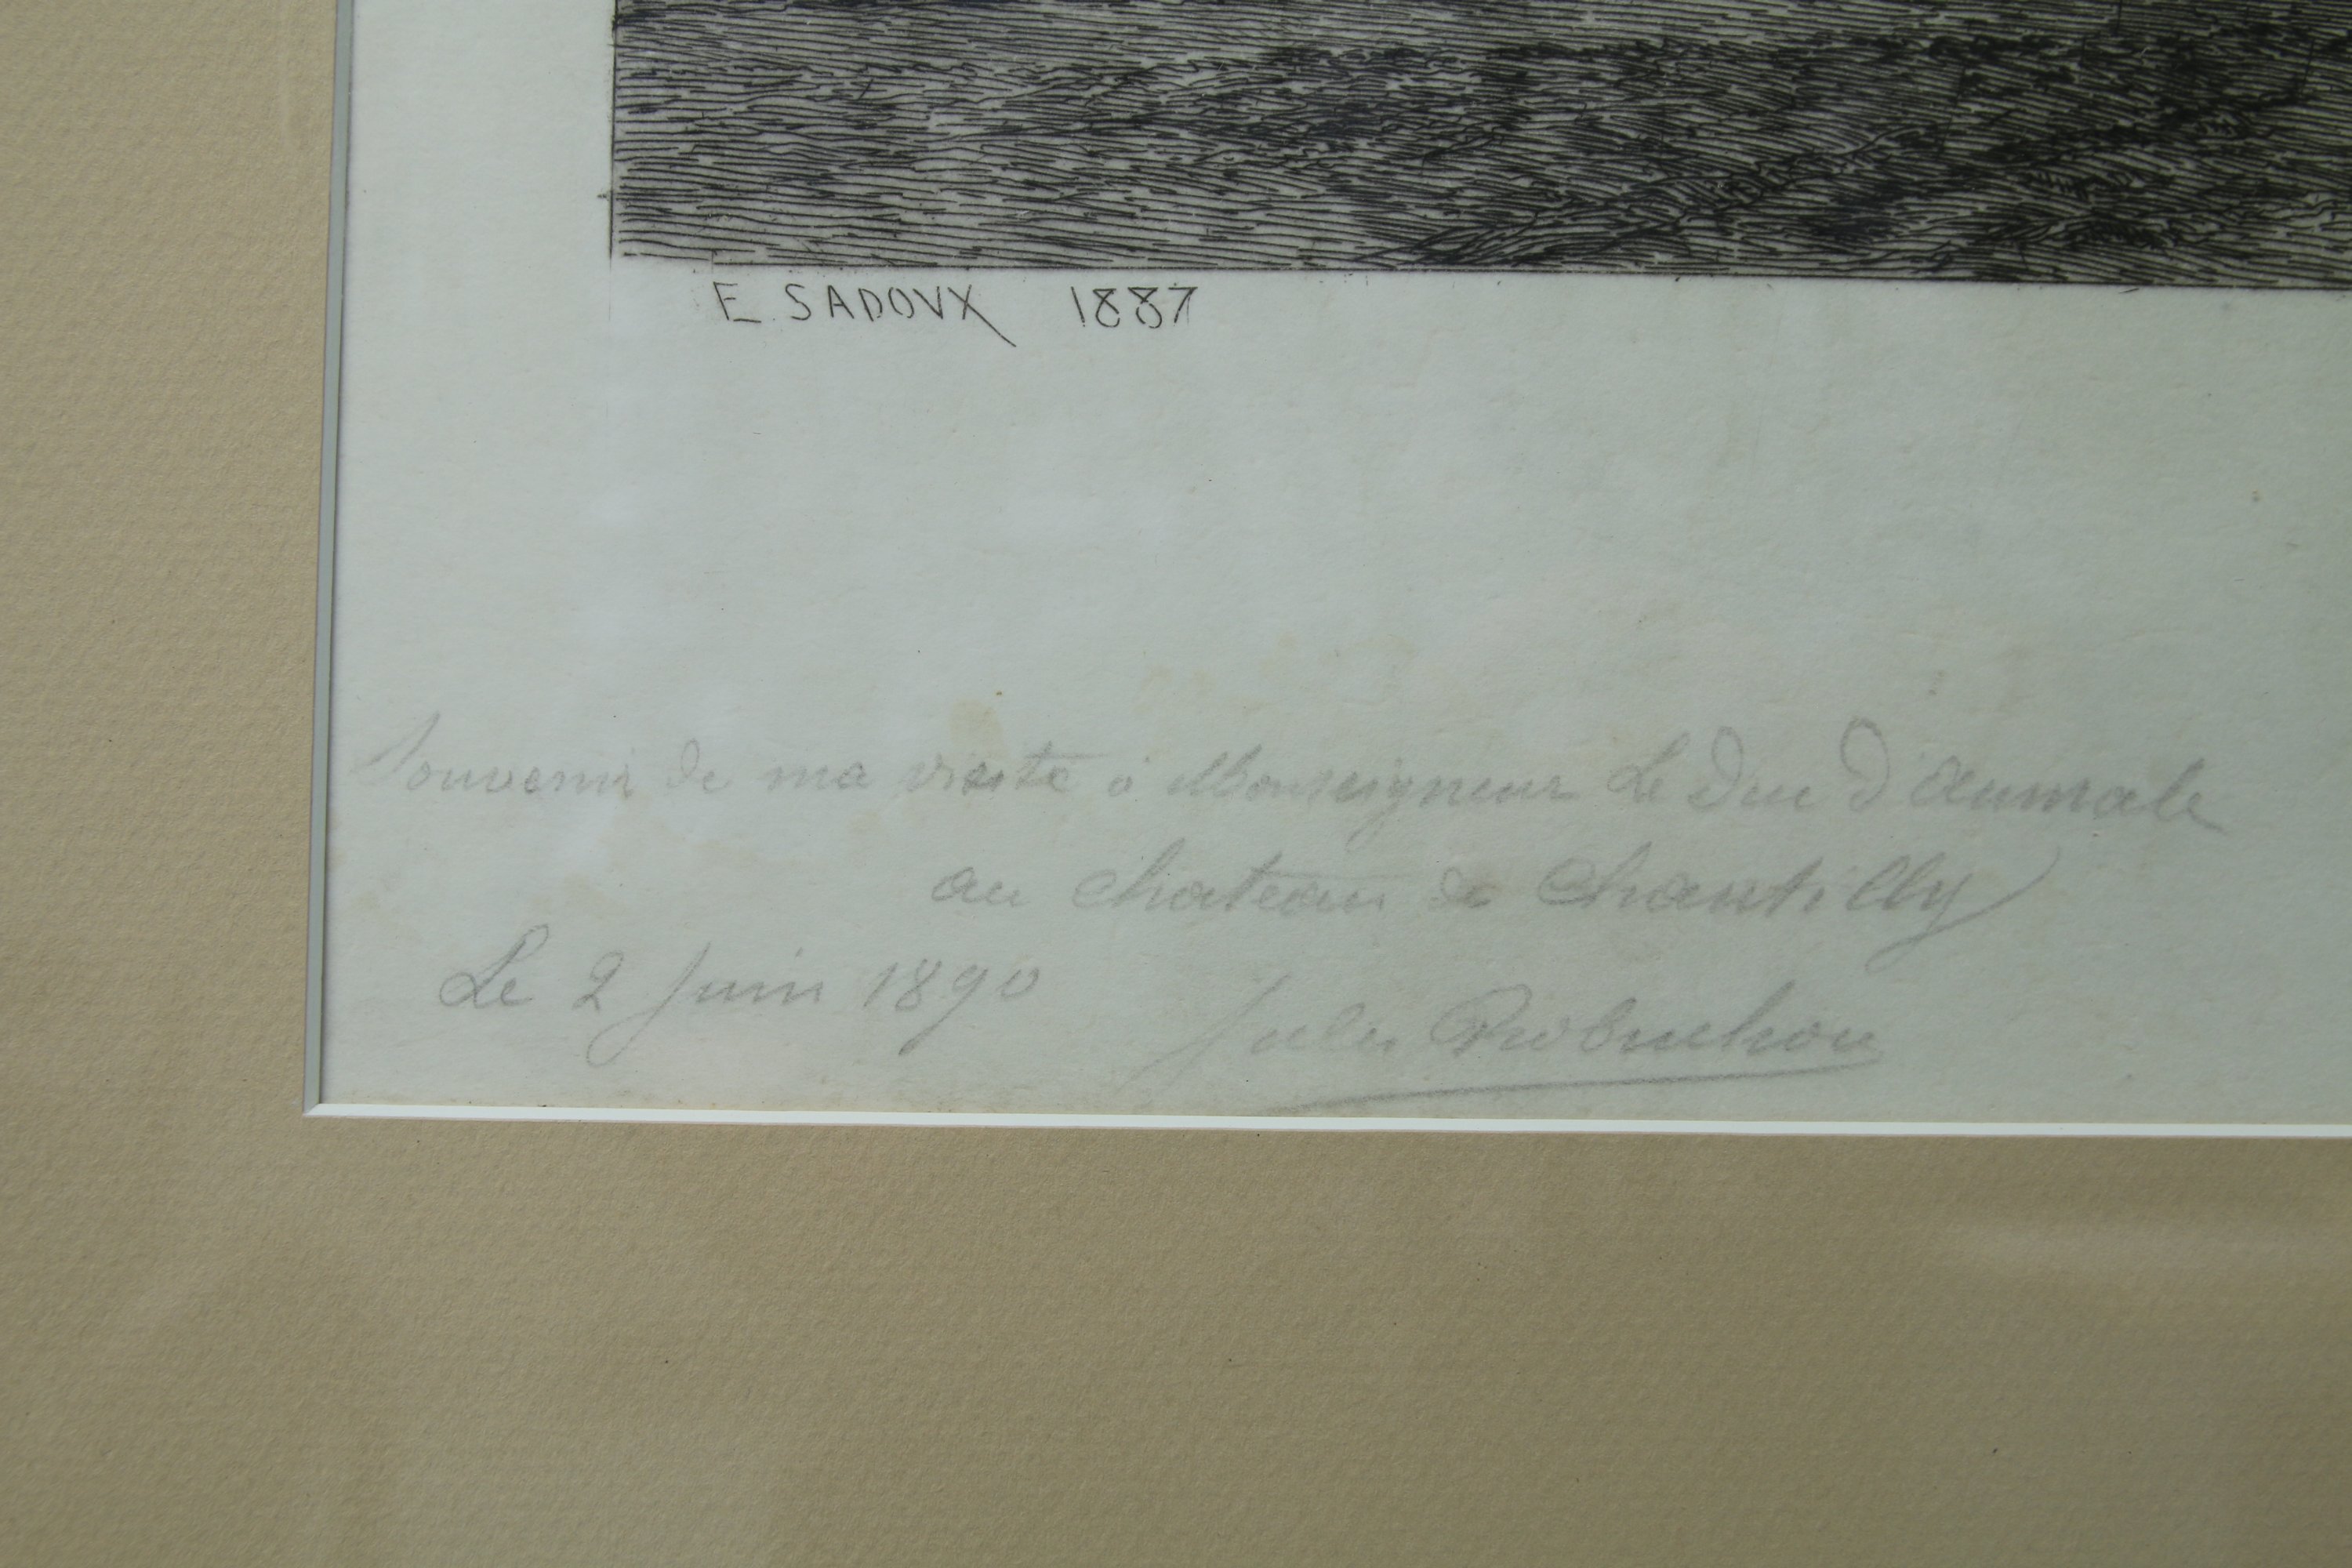 E. SADOVX 1887
Souvenir de ma visite à Monseigneur Le Duc D'Aumale
au chateau de Chantilly
Le 2 Juin 1890
Jules Robuchon